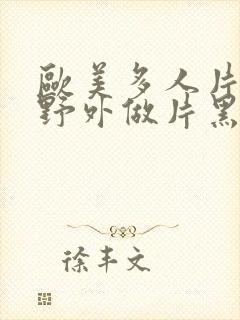 歐美多人片
野外做片黑
徐丰文